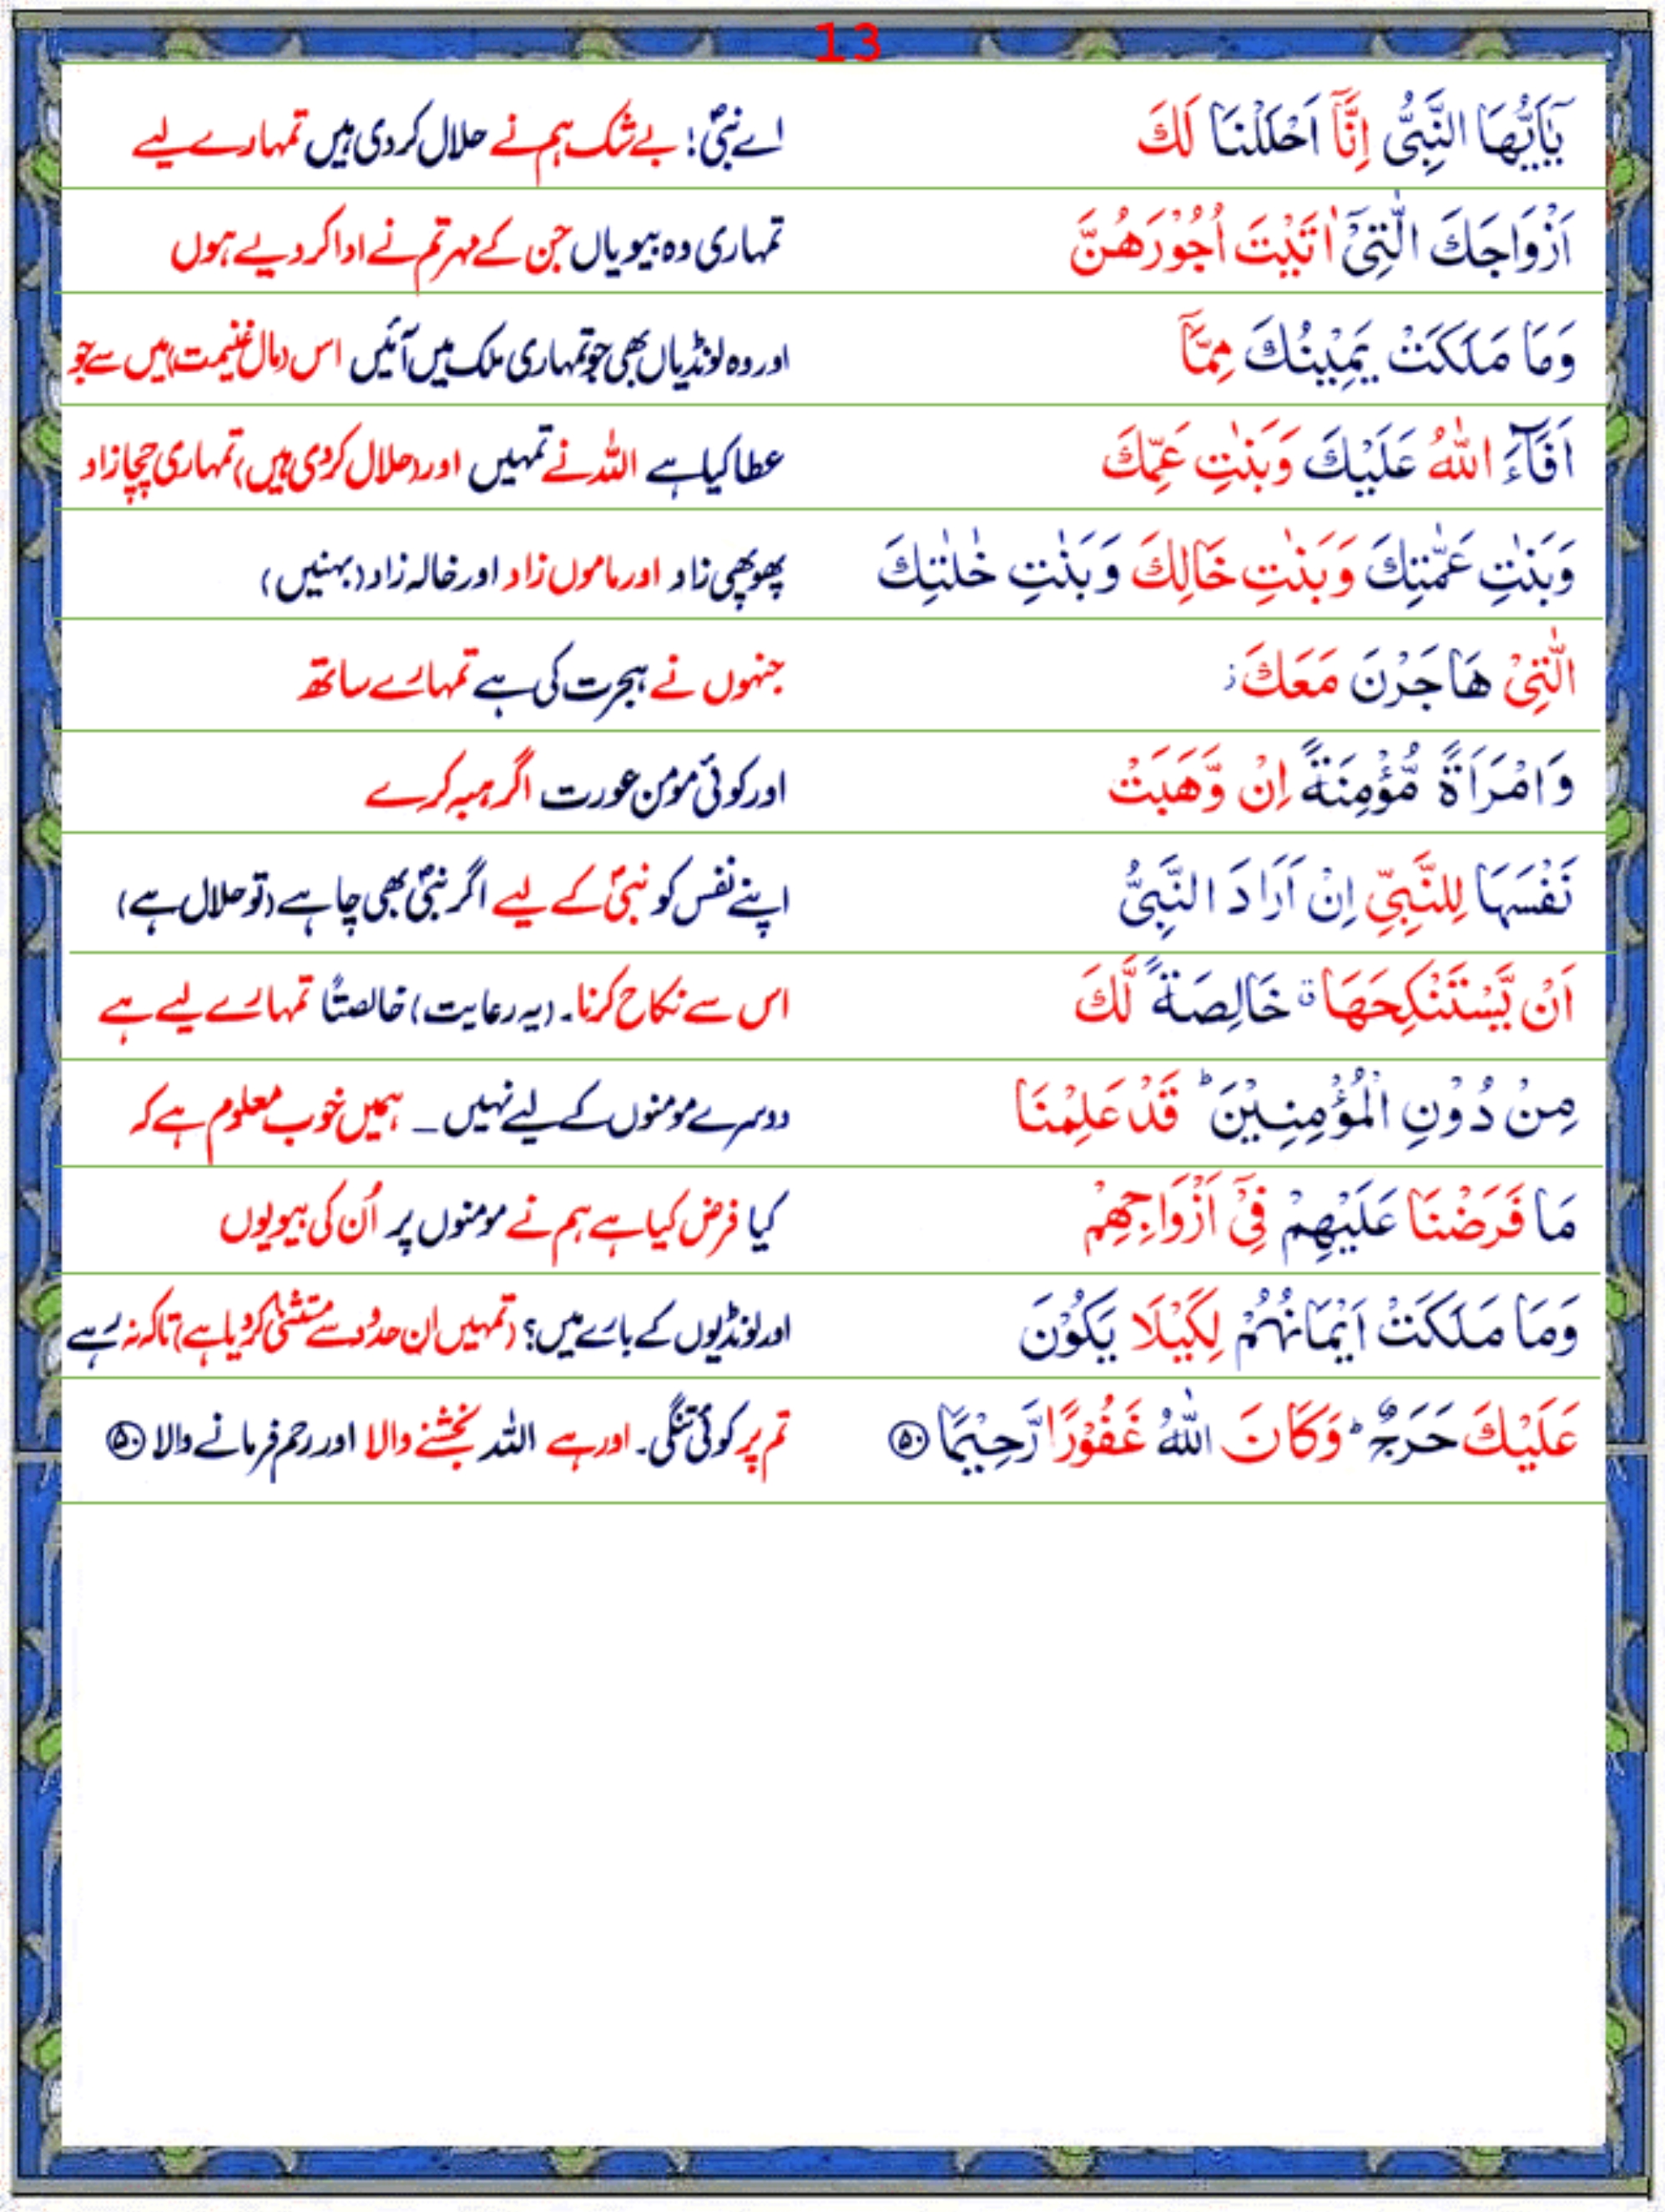 13
يٰۤاَيُّهَا النَّبِىُّ اِنَّاۤ اَحْلَلْنَا لَكَ اے نبیؐ! بے شک ہم نے حلال کردی ہیں تمہارے لیے
اَزْوَاجَكَ الّٰتِىْۤ اٰتَيْتَ اُجُوْرَهُنَّ تمہاری وہ بیویاں جن کے مہر تم نے ادا کردیے ہوں
وَمَا مَلَكَتْ يَمِيْنُكَ مِمَّاۤ اور وہ لونڈیاں بھی جو تمہاری ملک میں آئیں اس (مال غنیمت) میں سے جو
اَفَآءَ اللّٰهُ عَلَيْكَ وَبَنٰتِ عَمِّكَ عطا کیا ہے اللہ نے تمہیں اور (حلال کردی ہیں) تمہاری چچا زاد
وَبَنٰتِ عَمّٰتِكَ وَبَنٰتِ خَالِكَ وَبَنٰتِ خٰلٰتِكَ پھوپھی زاد اور ماموں زاد اور خالہ زاد (بہنیں)
الّٰتِىْ هَاجَرْنَ مَعَكَ ز جنہوں نے ہجرت کی ہے تمہارے ساتھ
وَامْرَاَةً مُّؤْمِنَةً اِنْ وَّهَبَتْ اور کوئی مومن عورت اگر ہبہ کرے
نَفْسَهَا لِلنَّبِىِّ اِنْ اَرَادَ النَّبِىُّ اپنے نفس کو نبیؐ کے لیے اگر نبیؐ بھی چاہے (تو حلال ہے)
اَنْ يَّسْتَنْكِحَهَا ق خَالِصَةً لَّكَ اس سے نکاح کرنا۔ (یہ رعایت) خالصتاً تمہارے لیے ہے
مِنْ دُوْنِ الْمُؤْمِنِيْنَ ؕ قَدْ عَلِمْنَا دوسرے مومنوں کے لیے نہیں ۔ ہمیں خوب معلوم ہے کہ
مَا فَرَضْنَا عَلَيْهِمْ فِىْۤ اَزْوَاجِهِمْ کیا فرض کیا ہے ہم نے مومنوں پر اُن کی بیویوں
وَمَا مَلَكَتْ اَيْمَانُهُمْ لِكَيْلَا يَكُوْنَ اور لونڈیوں کے بارے میں؟ (تمہیں ان حدود سے مستثنٰی کردیا ہے) تاکہ نہ رہے
عَلَيْكَ حَرَجٌ ؕ وَكَانَ اللّٰهُ غَفُوْرًا رَّحِيْمًا ۵۰ تم پر کوئی تنگی۔ اور ہے اللہ بخشنے والا اور رحم فرمانے والا ۵۰